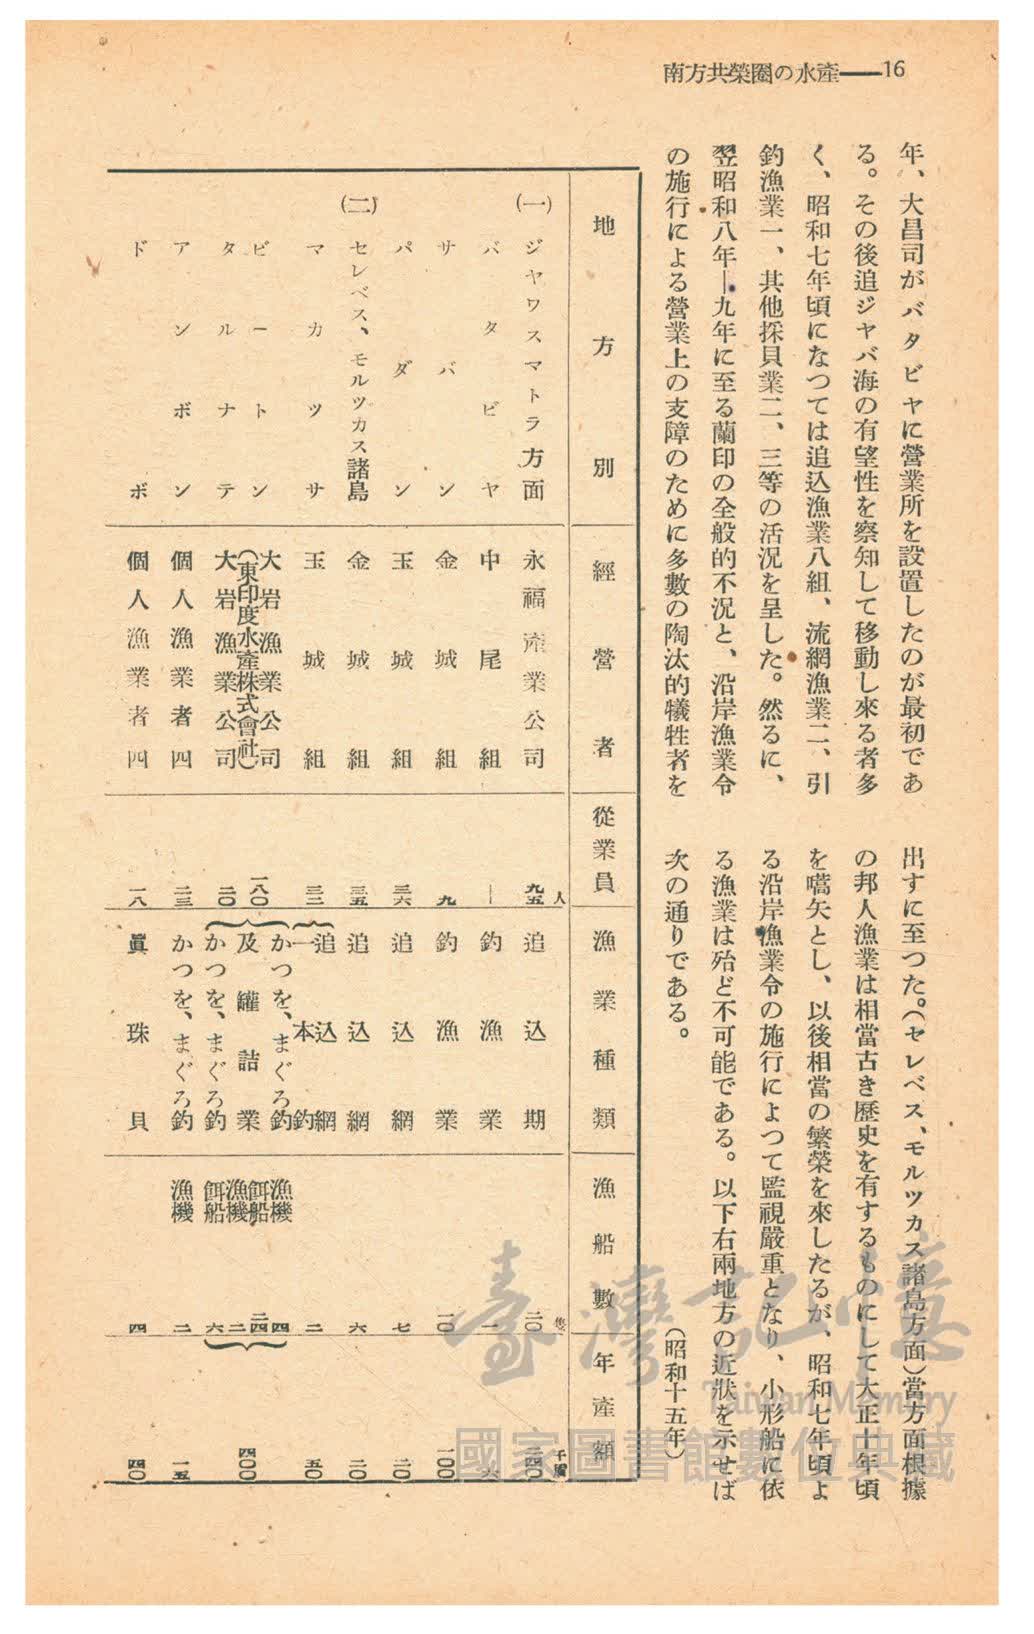 南方共榮圈の水產——16
年、大昌司がバタビヤに營業所を設置したのが最初であ
る。その後追ジャバ海の有望性を察知して移動し來る者多
く、昭和七年頃になつては追込漁業八組、流網漁業二、引
釣漁業一、其他採貝業二、三等の活況を呈した。然るに、
翌昭和八年—九年に至る蘭印の全般的不況と、沿岸漁業令
の施行による營業上の支障のために多數の陶汰的犧牲者を
出すに至つた。(セレベス、モルツカス諸島方面)當方面根據
の邦人漁業は相當古き歷史を有するものにして大正十年頃
を嚆矢とし、以後相當の繁榮を來したるが、昭和七年頃よ
る沿岸漁業令の施行によつて監視嚴重となり、小形船に依
る漁業は殆ど不可能である。以下右兩地方の近狀を示せば
次の通りである。
(昭和十五年)
地方別 經營者 從業員 漁業種類 漁船數 年產額
人 隻 千盾
(一)ジャワスマトラ方面 永福產業公司 九五 追込期 二〇 二四〇
バタビヤ 中尾組 — 釣漁業 一 六
サバン 金城組 九 釣漁業 一〇 一〇〇
パダン 玉城組 三六 追込網 七 二〇
(二)セレベス、モルツカス諸島 金城組 三五 追込網 六 二〇
マカツサ 玉城組 三二 追込網 一本釣 二 五〇
ビートン 大岩漁業公司 (東印度水產株式會社) 一八〇 かつを、まぐろ釣 及罐詰業 漁機 四 餌船 二四 四〇〇
タルナテ 大岩漁業公司 二〇 かつを、まぐろ釣 漁機 二 餌船 六
アンボン 個人漁業者四 二三 かつを、まぐろ釣 漁機 二 一五
ドボ 個人漁業者四 一八 眞珠貝 四 四〇
臺灣記憶
Taiwan Memory
國家圖書館數位典藏